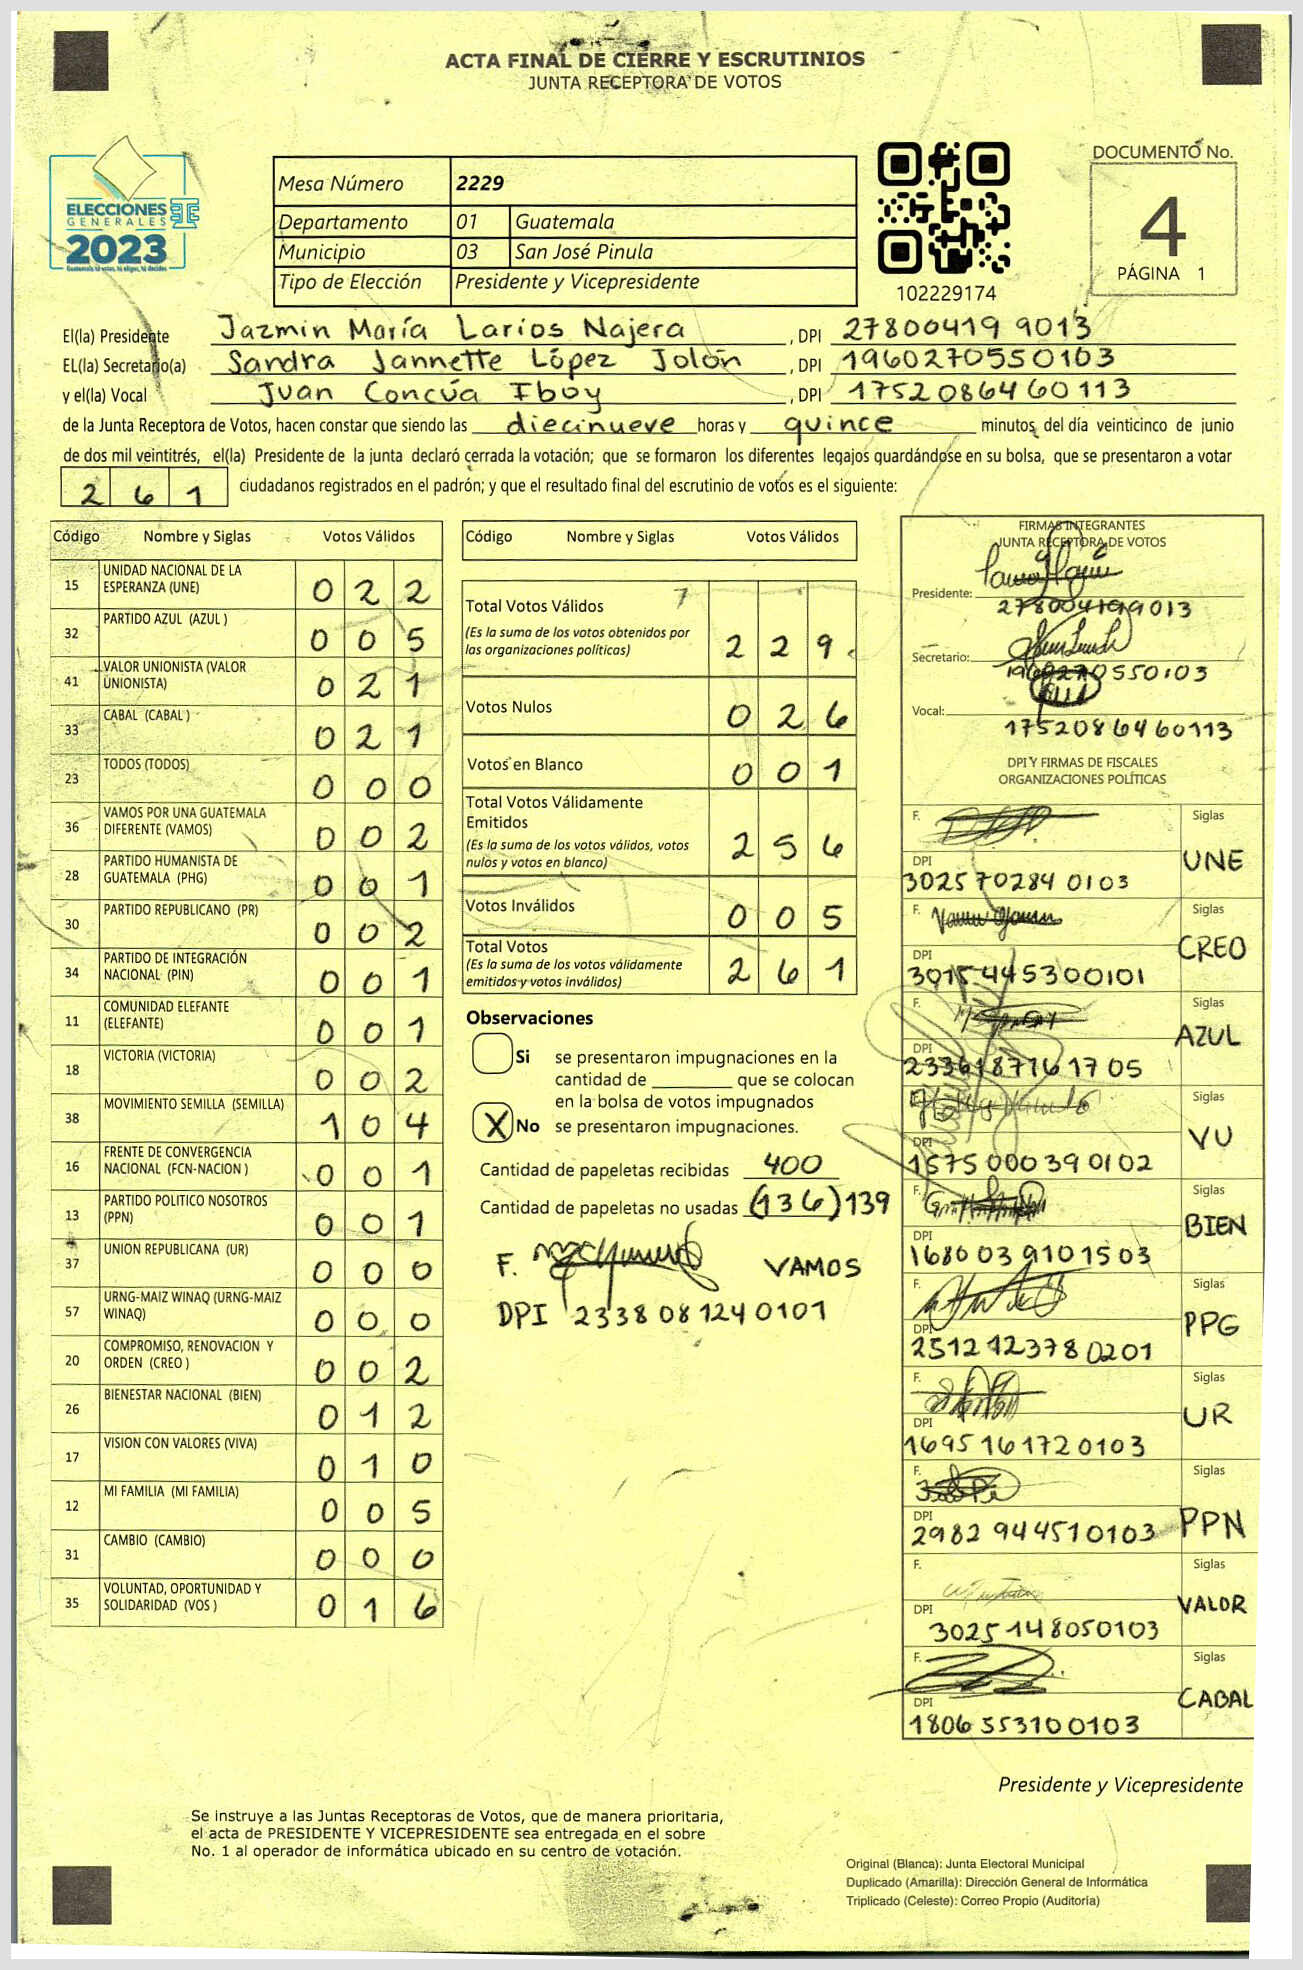 ACTA FINAL DE CIERRE Y ESCRUTINIOS
JUNTA RECEPTORA DE VOTOS
ELECCIONES
GENERALES
2023
Guatemala tú votas, tú eliges, tú decides
Mesa Número 2229
Departamento 01 Guatemala
Municipio 03 San José Pinula
Tipo de Elección Presidente y Vicepresidente
102229174
DOCUMENTO No.
4
PÁGINA 1
El(la) Presidente Jazmin María Larios Najera , DPI 27800419 9013
EL(la) Secretario(a) Sandra Jannette López Jolón , DPI 1960270550103
y el(la) Vocal Juan Concúa Iboy , DPI 1752086460113
de la Junta Receptora de Votos, hacen constar que siendo las diecinueve horas y quince minutos del día veinticinco de junio
de dos mil veintitrés, el(la) Presidente de la junta declaró cerrada la votación; que se formaron los diferentes legajos guardándose en su bolsa, que se presentaron a votar
261 ciudadanos registrados en el padrón; y que el resultado final del escrutinio de votos es el siguiente:
Código Nombre y Siglas Votos Válidos
15 UNIDAD NACIONAL DE LA
ESPERANZA (UNE) 022
32 PARTIDO AZUL (AZUL ) 005
41 VALOR UNIONISTA (VALOR
UNIONISTA) 021
33 CABAL (CABAL ) 021
23 TODOS (TODOS) 000
36 VAMOS POR UNA GUATEMALA
DIFERENTE (VAMOS) 002
28 PARTIDO HUMANISTA DE
GUATEMALA (PHG) 001
30 PARTIDO REPUBLICANO (PR) 002
34 PARTIDO DE INTEGRACIÓN
NACIONAL (PIN) 001
11 COMUNIDAD ELEFANTE
(ELEFANTE) 001
18 VICTORIA (VICTORIA) 002
38 MOVIMIENTO SEMILLA (SEMILLA) 104
16 FRENTE DE CONVERGENCIA
NACIONAL (FCN-NACION ) 001
13 PARTIDO POLITICO NOSOTROS
(PPN) 001
37 UNION REPUBLICANA (UR) 000
57 URNG-MAIZ WINAQ (URNG-MAIZ
WINAQ) 000
20 COMPROMISO, RENOVACION Y
ORDEN (CREO ) 002
26 BIENESTAR NACIONAL (BIEN) 012
17 VISION CON VALORES (VIVA) 010
12 MI FAMILIA (MI FAMILIA) 005
31 CAMBIO (CAMBIO) 000
35 VOLUNTAD, OPORTUNIDAD Y
SOLIDARIDAD (VOS ) 016
Código Nombre y Siglas Votos Válidos
Total Votos Válidos 7
(Es la suma de los votos obtenidos por
las organizaciones políticas) 229
Votos Nulos 026
Votos en Blanco 001
Total Votos Válidamente
Emitidos
(Es la suma de los votos válidos, votos
nulos y votos en blanco) 256
Votos Inválidos 005
Total Votos
(Es la suma de los votos válidamente
emitidos y votos inválidos) 261
Observaciones
Si se presentaron impugnaciones en la
cantidad de ________ que se colocan
en la bolsa de votos impugnados
X No se presentaron impugnaciones.
Cantidad de papeletas recibidas 400
Cantidad de papeletas no usadas (136) 139
F. VAMOS
DPI 2338 08124 0101
FIRMAS INTEGRANTES
JUNTA RECEPTORA DE VOTOS
Presidente:
278004199013
Secretario:
1960270550103
Vocal:
1752086460113
DPI Y FIRMAS DE FISCALES
ORGANIZACIONES POLÍTICAS
F. Siglas
DPI UNE
302570284 0103
F. Siglas
DPI CREO
3015445300101
F. Siglas
DPI AZUL
2336187761705
F. Siglas
DPI VU
1575 000 39 0102
F. Siglas
DPI BIEN
1680039101503
F. Siglas
DPI PPG
2512123780201
F. Siglas
DPI UR
1695161720103
F. Siglas
DPI PPN
2982 944510103
F. Siglas
DPI VALOR
3025148050103
F. Siglas
DPI CABAL
1806 553100103
Presidente y Vicepresidente
Se instruye a las Juntas Receptoras de Votos, que de manera prioritaria,
el acta de PRESIDENTE Y VICEPRESIDENTE sea entregada en el sobre
No. 1 al operador de informática ubicado en su centro de votación.
Original (Blanca): Junta Electoral Municipal
Duplicado (Amarilla): Dirección General de Informática
Triplicado (Celeste): Correo Propio (Auditoría)